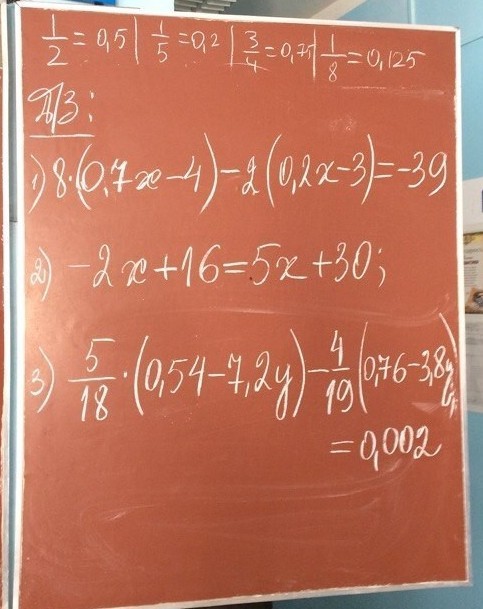 1/2 = 0,5 | 1/5 = 0,2 | 3/4 = 0,75 | 1/8 = 0,125
Д/З:
1) 8·(0,7x-4)-2(0,2x-3)=-39
2) -2x+16=5x+30;
3) 5/18·(0,54-7,2y)-4/19(0,76-3,8y)
=0,002